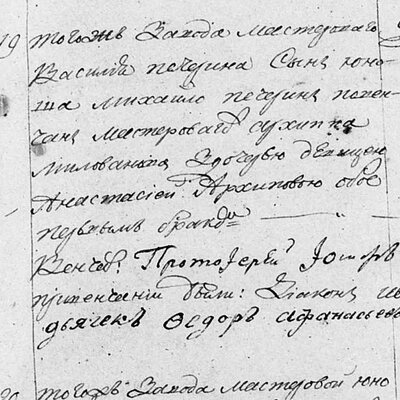 19 тогожъ Завода Мастероваго
Василия печерина Сынъ юно-
ша михайло печеринъ повен-
чанъ мастероваго архипа
милованова З дочерью девицею
Анастасиею Архиповою обое
первымъ бракомъ
Венчалъ Протоіерей Іоаннъ
привенчаніи были: Діаконъ
дьячекъ Ѳедоръ Афанасьевъ
тогожъ Завода Мастеровой юно